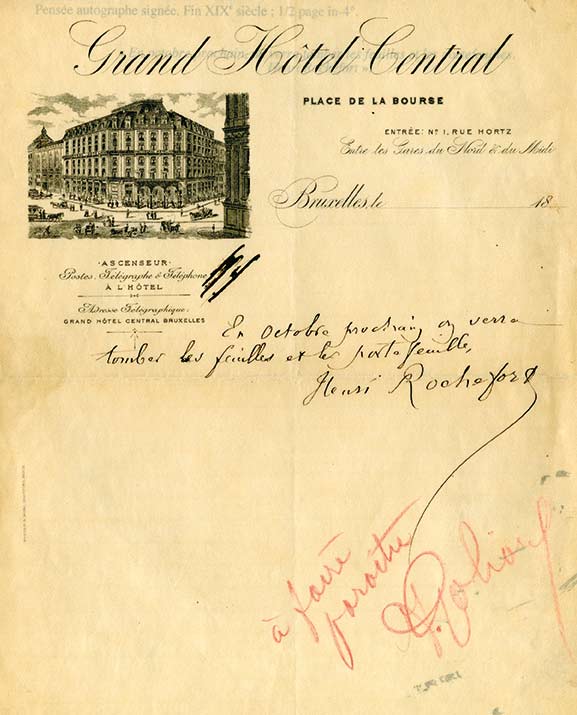 Pensée autographe signée. Fin XIXᵉ siècle ; 1/2 page in-4°.
Grand Hôtel Central
PLACE DE LA BOURSE
ENTRÉE: Nº 1, RUE HORTZ
Entre les Gares du Nord & du Midi
Bruxelles, le 18
ASCENSEUR
Postes, Télégraphe & Téléphone
À L'HÔTEL
Adresse Télégraphique:
GRAND HÔTEL CENTRAL BRUXELLES
En octobre prochain, on verra
tomber les feuilles et les portefeuille,
Henri Rochefort
à faire
paraître